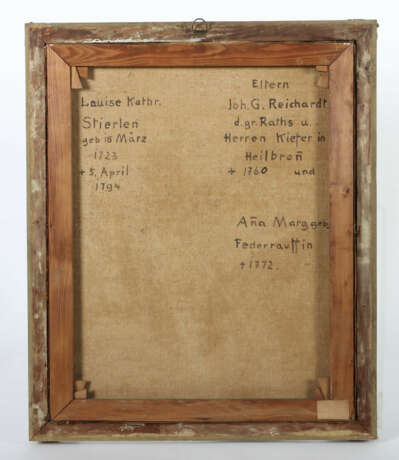 Louise Kathr.
Stierlen
geb 18 März
1723
+ 5. April
1794
Eltern
Joh. G. Reichardt
d. gr. Raths u.
Herren Kiefer in
Heilbron̄
+ 1760 und
An̄a Marg geb
Federrauffin
+ 1772.